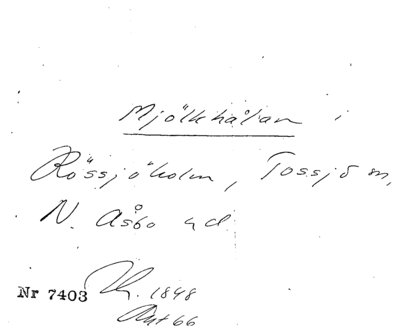 Mjölkhålan i
Rössjöholm, Tossjö m,
N. Åsbo hd
Nr 7403 1848
Akt 66